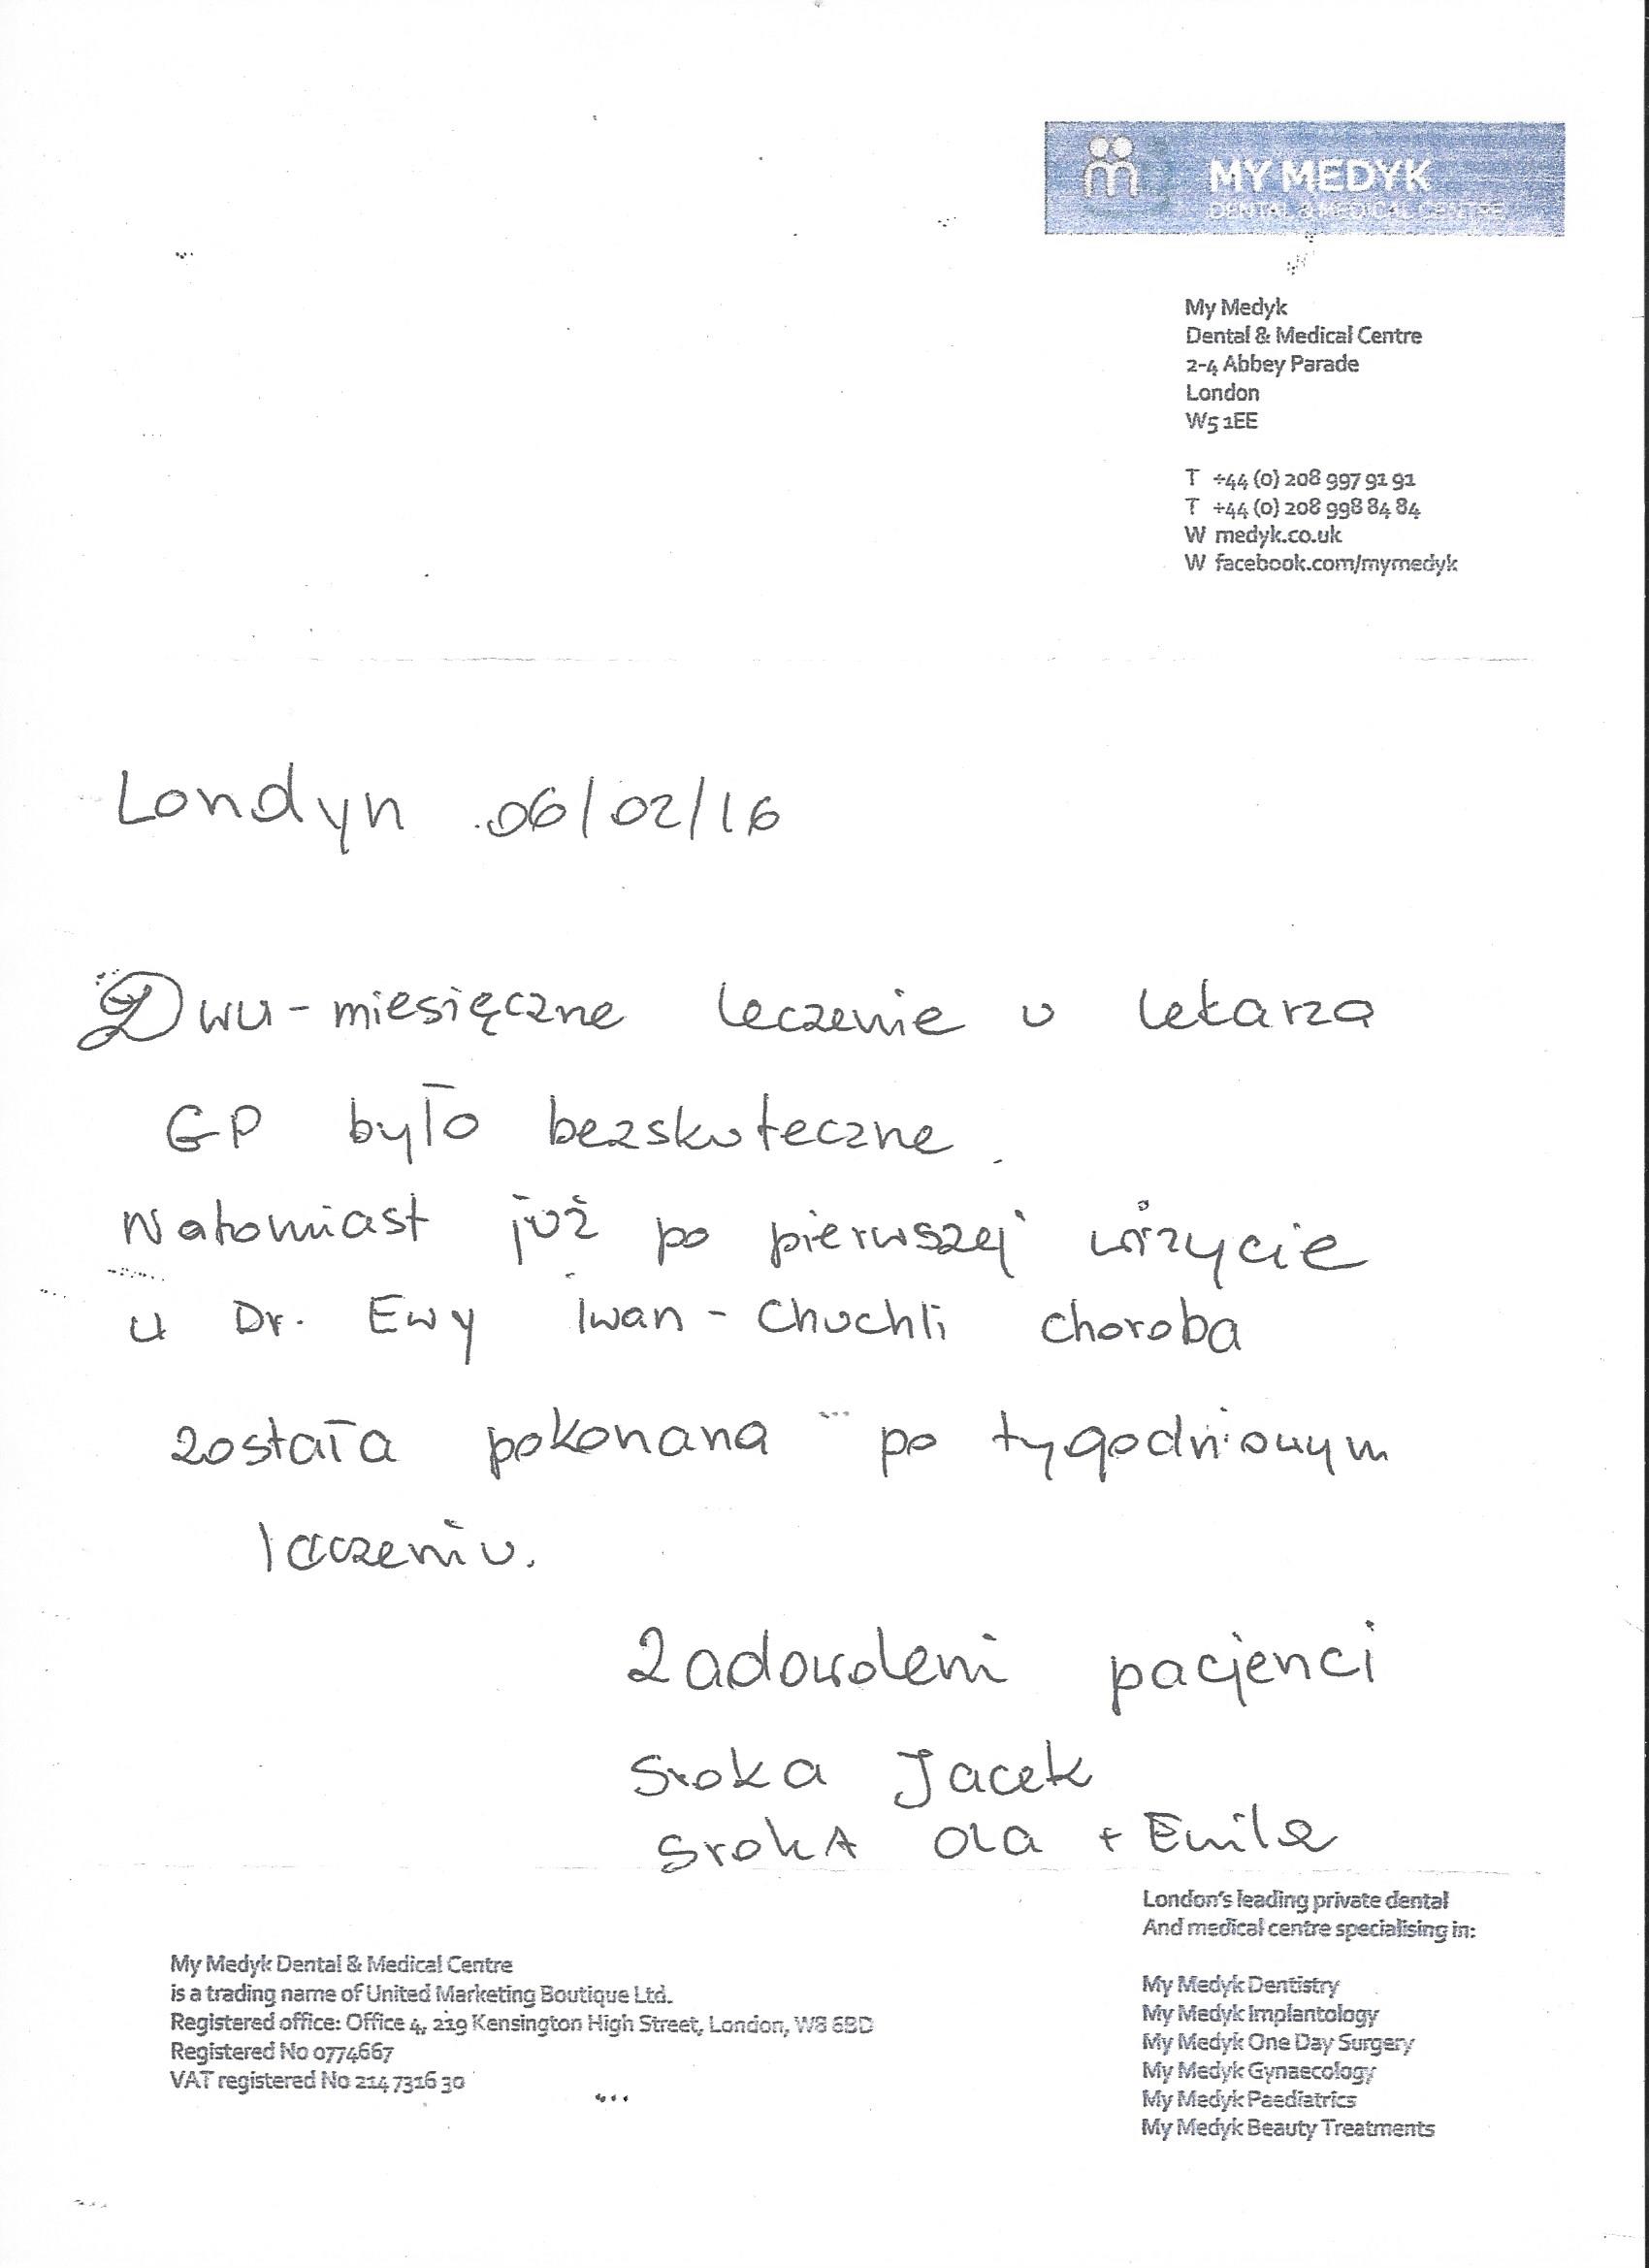 MY MEDYK
DENTAL & MEDICAL CENTRE
My Medyk
Dental & Medical Centre
2-4 Abbey Parade
London
W5 1EE
T +44 (0) 208 997 91 91
T +44 (0) 208 998 84 84
W medyk.co.uk
W facebook.com/mymedyk
Londyn 06/02/16
Dwu-miesięczne leczenie u lekarza
GP było bezskuteczne.
Natomiast już po pierwszej wizycie
u Dr. Ewy Iwan-Chuchli choroba
została pokonana po tygodniowym
leczeniu.
Zadowoleni pacjenci
Sroka Jacek
Sroka Ola + Emila
London's leading private dental
And medical centre specialising in:
My Medyk Dentistry
My Medyk Implantology
My Medyk One Day Surgery
My Medyk Gynaecology
My Medyk Paediatrics
My Medyk Beauty Treatments
My Medyk Dental & Medical Centre
is a trading name of United Marketing Boutique Ltd.
Registered office: Office 4, 219 Kensington High Street, London, W8 6BD
Registered No 0774667
VAT registered No 214 7316 30